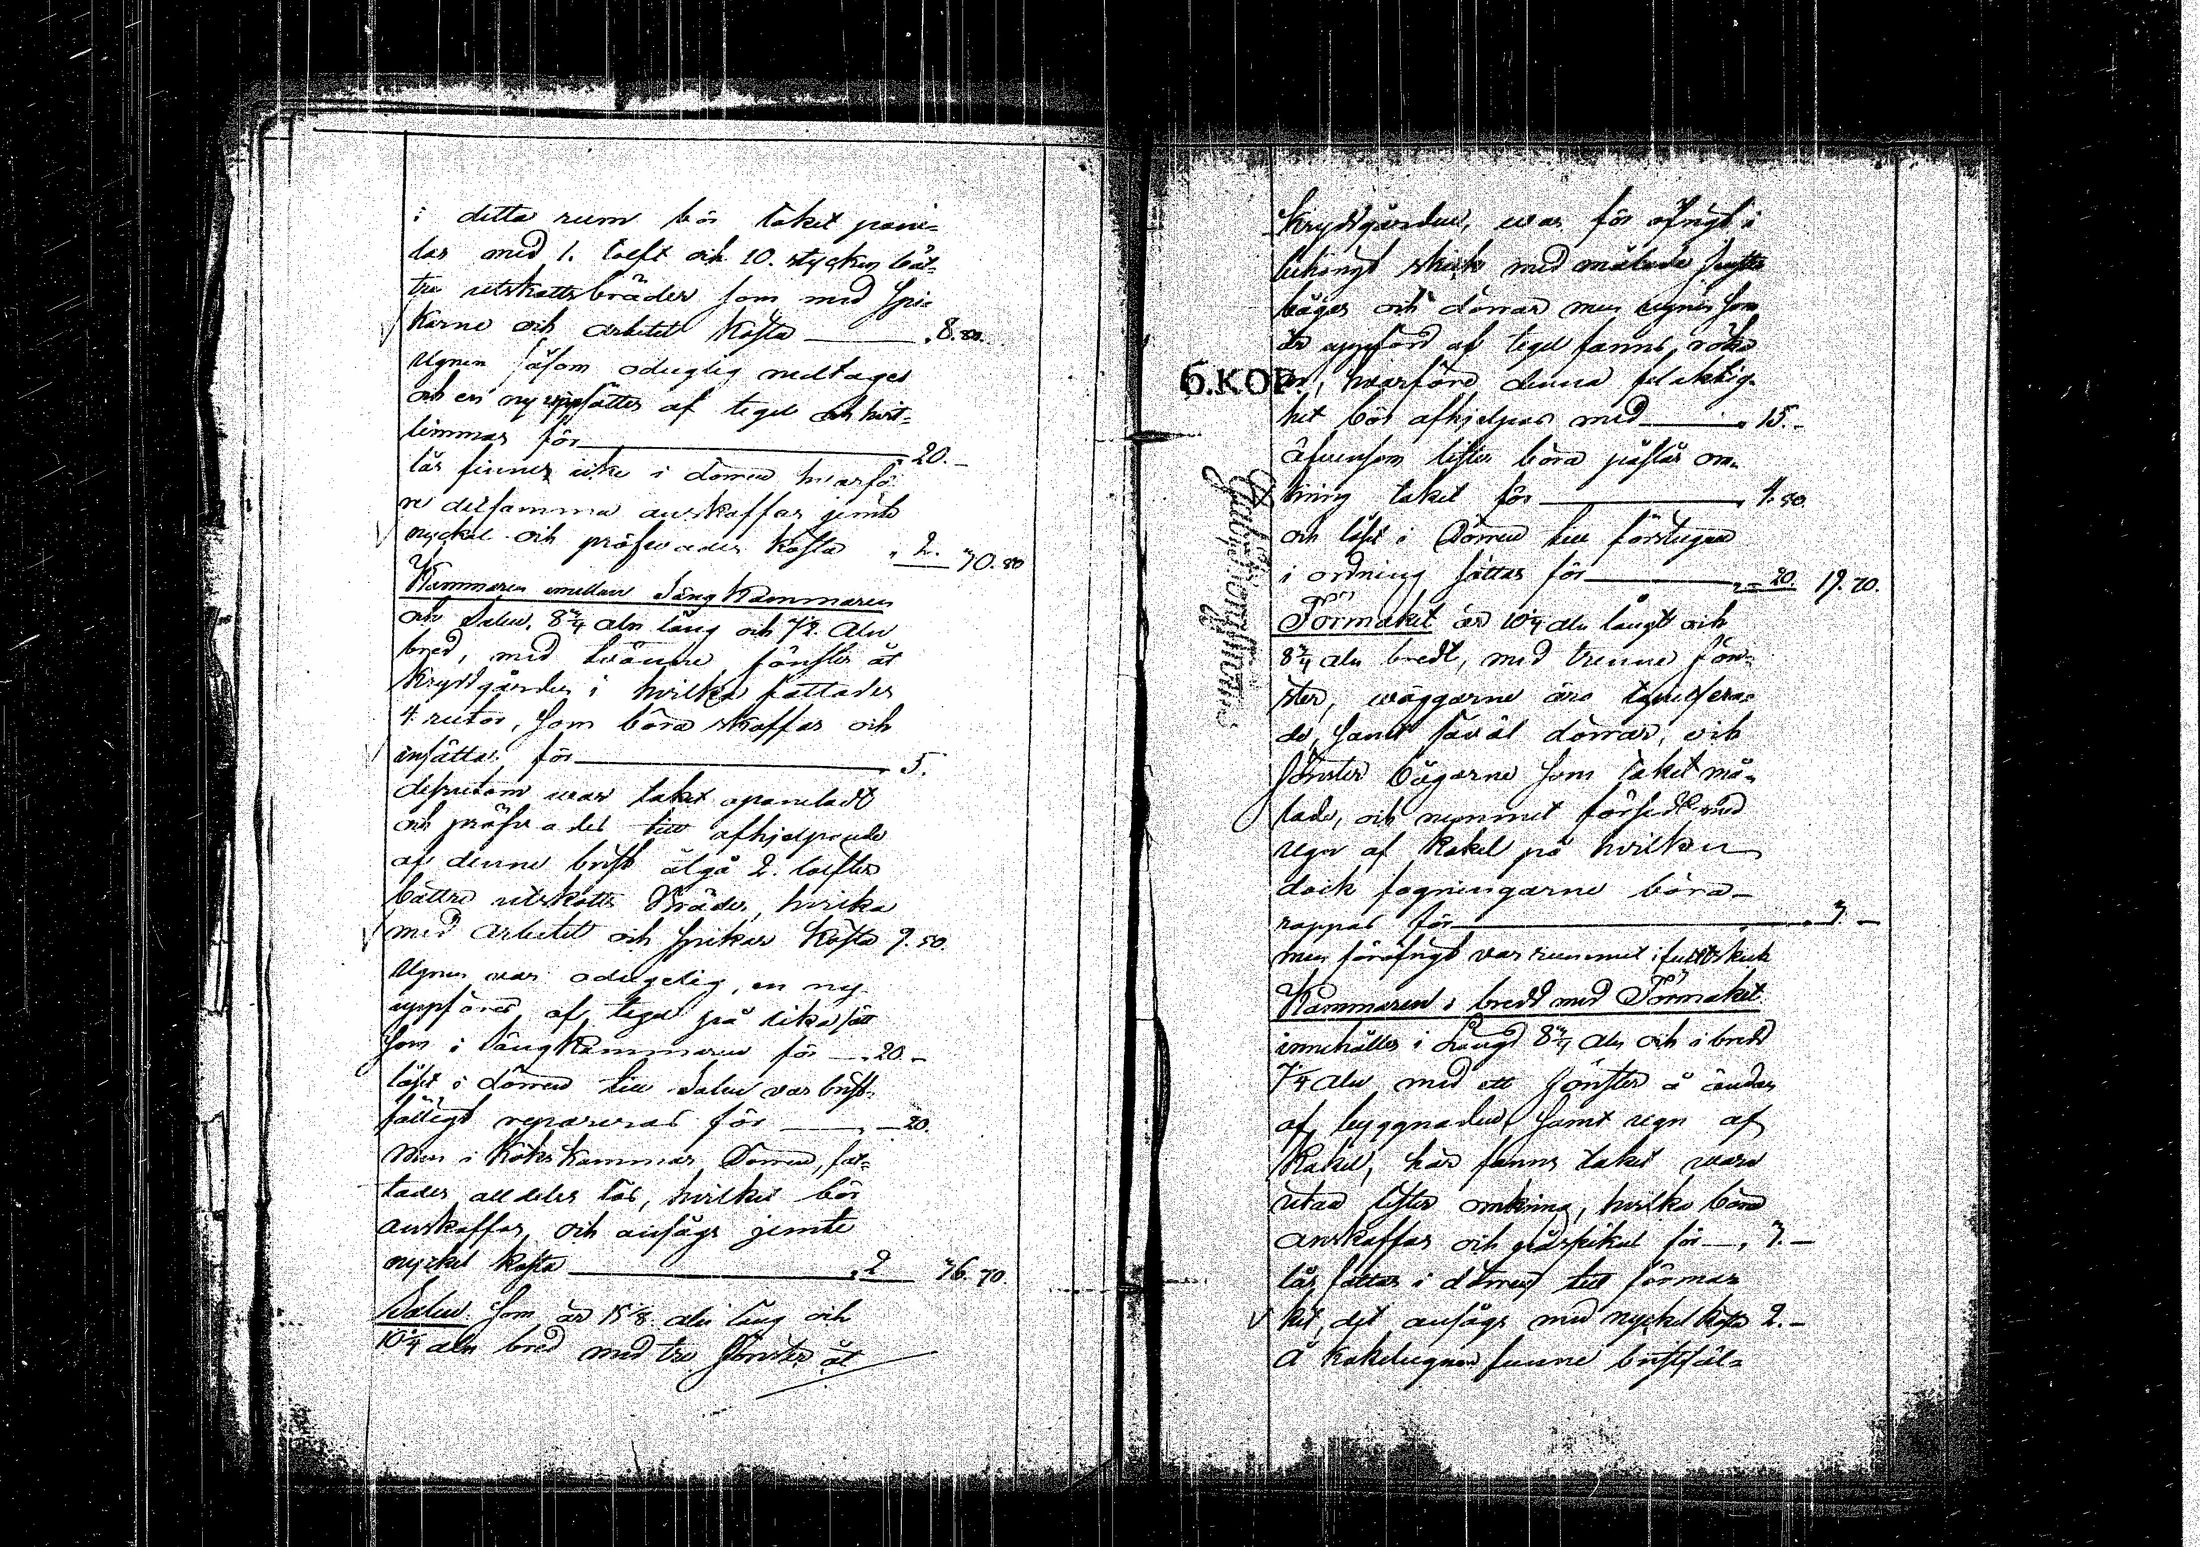 i detta rum bör taket pane-
las med 1. tolft och 10. stycken bät-
tre utskottsbräder som med spi-
karne och arbetet kosta 8.80.
Ugnen såsom oduglig nedtages
och en ny uppsättes af tegel och hvit-
limmas för 20.-
lås finnes icke i dörren hvarfö-
re detsamma anskaffas jemte
nyckel och pröfvades kosta 2. 30.80
Kammaren emellan Sängkammaren
och Salen, 8 3/4 aln lång och 7 1/2 aln
bred, med tvänne fönster åt
Kryddgården i hvilka fattades
4 rutor, som böra skaffas och
insättas för 5.
dessutom war taket opaneladt
och pröfvades till afhjelpande
af denne brist åtgå 2. tolfter
bättre utskotts Bräder, hvilka
med arbetet och spikar kosta 9.50.
Ugnen var oduglig, en ny
uppföres af tegel på lika sätt
som i Sängkammaren för 20.-
låset i dörren till Salen var brist-
fälligt repareras för 20.
Men i Köks kammar Dörren, fat-
tades alldeles lås, hvilket bör
anskaffas, och ansågs jemte
nyckel kosta 2 36.70.
Salen som är 15 1/8 aln lång och
10 3/4 aln bred med tre fönster åt
Kryddgården, war för öfrigt i
behörigt skick med målade fönster
bågar och dörrar men ugnen som
är uppförd af tegel fanns röka
in, hvarföre denna felaktig-
het bör afhjelpas med 15.-
äfvensom lister böra påslås om-
kring taket för 4.50.
och låset i Dörren till förstugan
i ordning sättas för 20. 19.70.
Förmaket är 10 3/4 aln långt och
8 3/4 aln bredt, med trenne fön-
ster, wäggarne äro tapetsera-
de, samt såväl dörrar, och
fönster bågarne som taket må-
lade, och rummet försedt med
ugn af Kakel på hvilken
dock fogningarne böra
rappas för 3.-
men föröfrigt var rummet i fullt skick
Kammaren i bredd med Förmaket
innehåller i Längd 8 3/4 aln och i bredd
7 1/4 aln med ett fönster å ändan
af byggnaden samt ugn af
Kakel, här fanns taket wara
utan lister omkring, hvilka böra
anskaffas och påspikas för 3.-
lås fattas i dörren till förma-
ket, det ansågs med nyckel kosta 2.-
å kakelugnen funne bristfäl-
6.KOP.